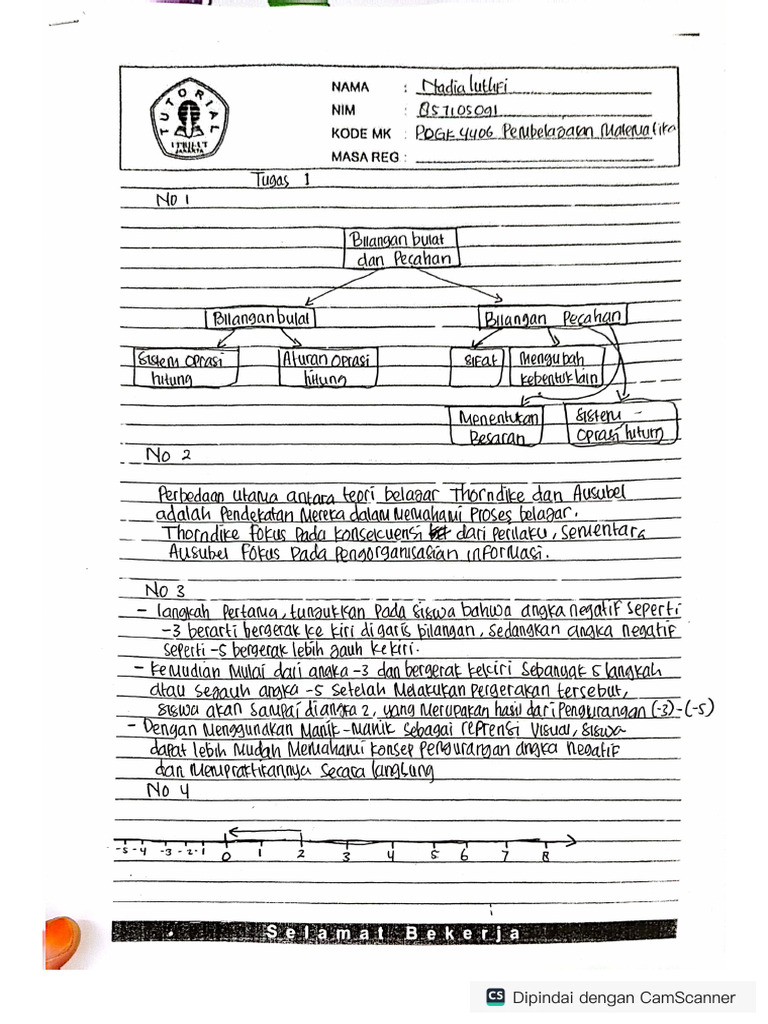 TUTORIAL
JAKARTA
NAMA : Nadia Luthfi
NIM : 857105091
KODE MK : PDGK 4406 Pembelajaran Matematika
MASA REG :
Tugas 1
No 1
Bilangan bulat
dan Pecahan
Bilangan bulat
Bilangan Pecahan
Sistem oprasi
hitung
Aturan oprasi
hitung
Sifat
Mengubah
kebentuk lain
Menentukan
Besaran
Sistem
oprasi hitung
No 2
Perbedaan utama antara teori belajar Thorndike dan Ausubel
adalah Pendekatan Mereka dalam Memahami Proses belajar.
Thorndike fokus pada konsekuensi dari Perilaku, Sementara
Ausubel fokus pada Pengorganisasian informasi.
No 3
- langkah Pertama, tunjukkan Pada Siswa bahwa angka negatif seperti
-3 berarti bergerak ke kiri di garis bilangan, sedangkan angka negatif
seperti -5 bergerak lebih jauh ke kiri.
- Kemudian Mulai dari angka -3 dan bergerak kekiri Sebanyak 5 langkah
atau sejauh angka -5 Setelah Melakukan Pergerakan tersebut,
siswa akan Sampai di angka 2, yang Merupakan hasil dari Pengurangan (-3)-(-5)
- Dengan Menggunakan Manik-Manik Sebagai reprensi Visual, Siswa
dapat lebih Mudah Memahami konsep Pengurangan angka negatif
dan Mempraktikannya Secara langsung
No 4
-5 -4 -3 -2 -1 0 1 2 3 4 5 6 7 8
Selamat Bekerja
CS Dipindai dengan CamScanner